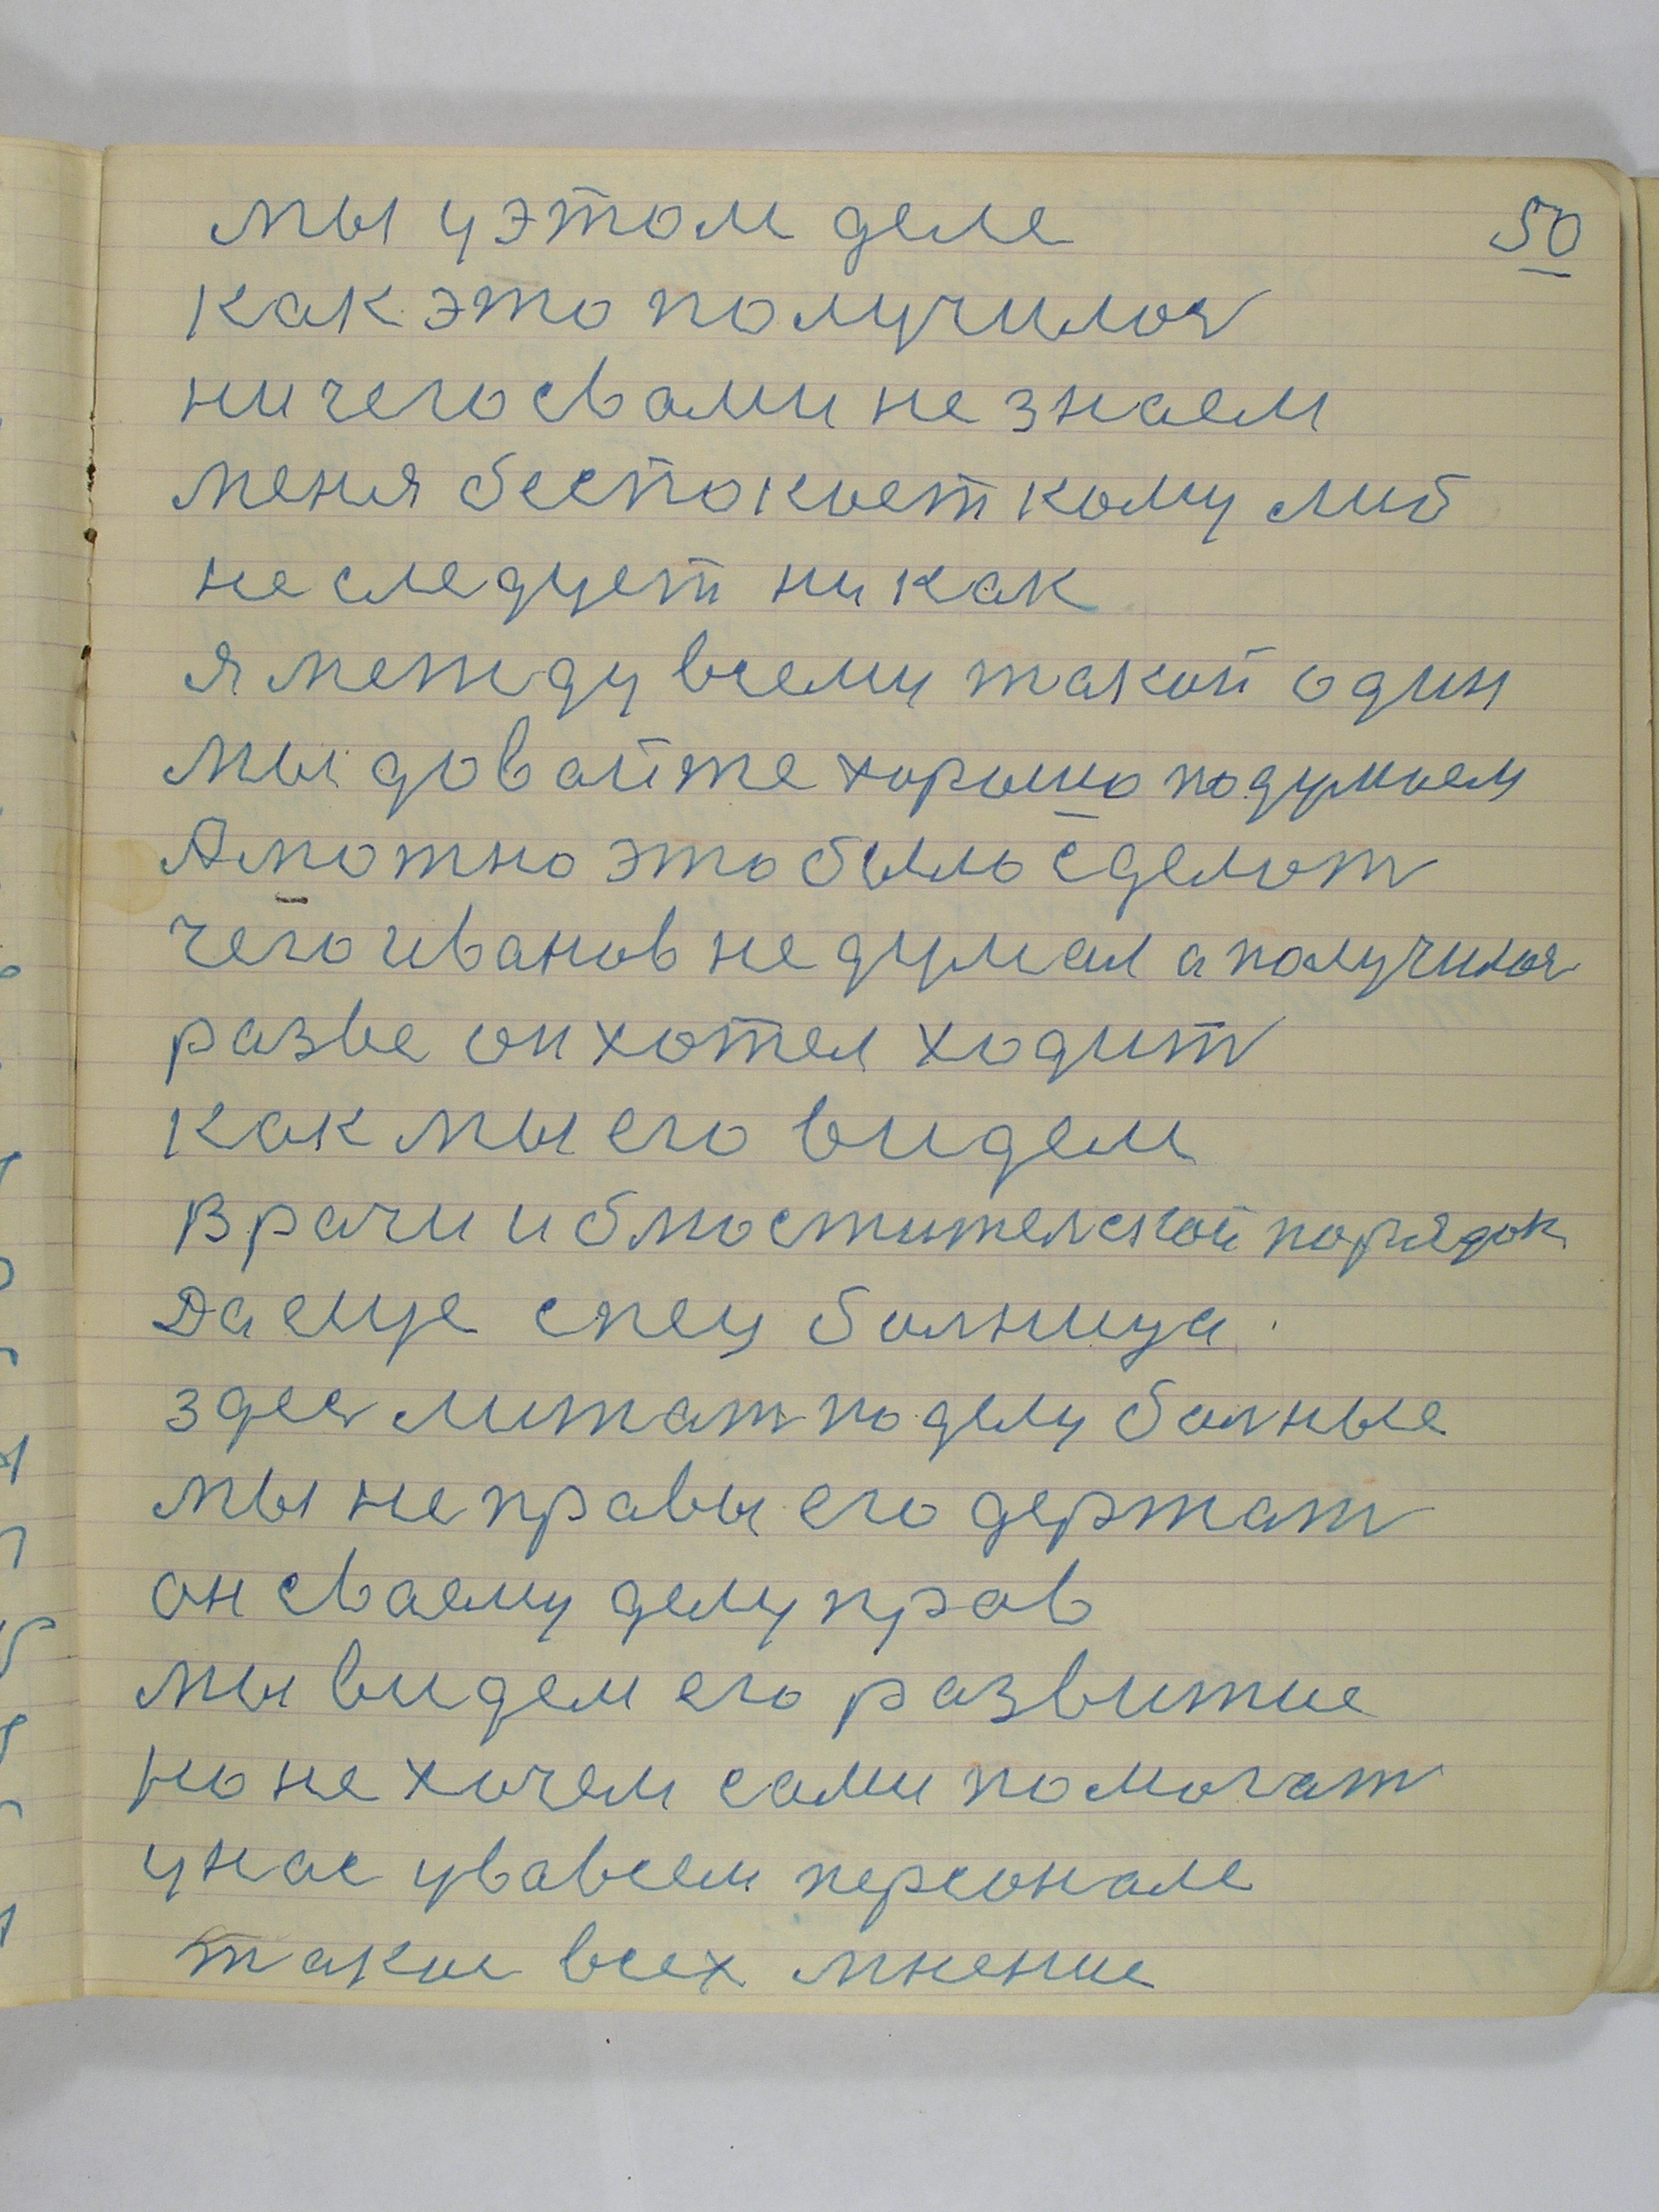 50
мы у этом деле
как это получилоя
ничего свами не знаем
меня беспокоет кому либ
не следует никак
я между всеми такой один
мы довайте хорошо подумаем
А можно это было сделат
чего иванов не думал а получилоя
разве он хотел ходит
как мы его видем
Врачи и блюстителской порядок
Да еще спец болница
здес лижат по делу болные
мы не правы его держат
он сваему делу прав
мы видем его развитие
но не хочем сами помогат
у нас увавсем персонале
такое всех мнение